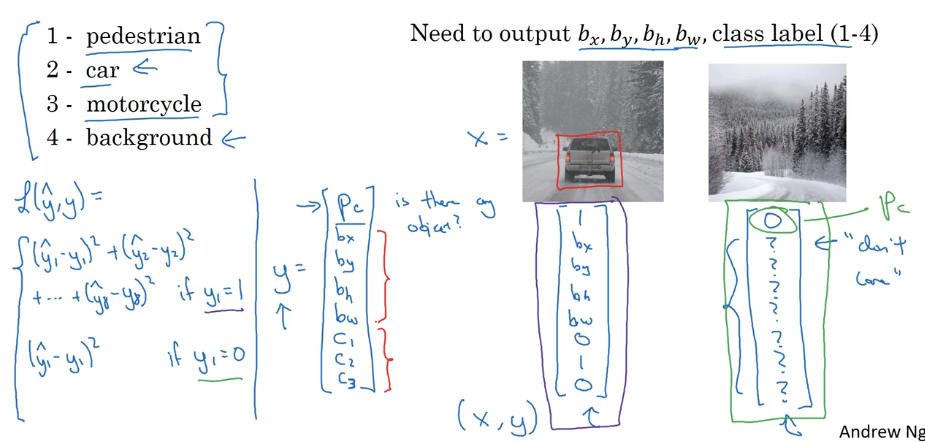 1 - pedestrian
2 - car
3 - motorcycle
4 - background
Need to output bx, by, bh, bw, class label (1-4)
x =
ℒ(ŷ,y) =
(ŷ1-y1)² + (ŷ2-y2)²
+ ... + (ŷ8-y8)² if y1=1
(ŷ1-y1)² if y1=0
y =
Pc
bx
by
bh
bw
C1
C2
C3
is there any
object?
1
bx
by
bh
bw
0
1
0
(x, y)
0
?
?
?
?
?
?
?
Pc
"don't
care"
Andrew Ng